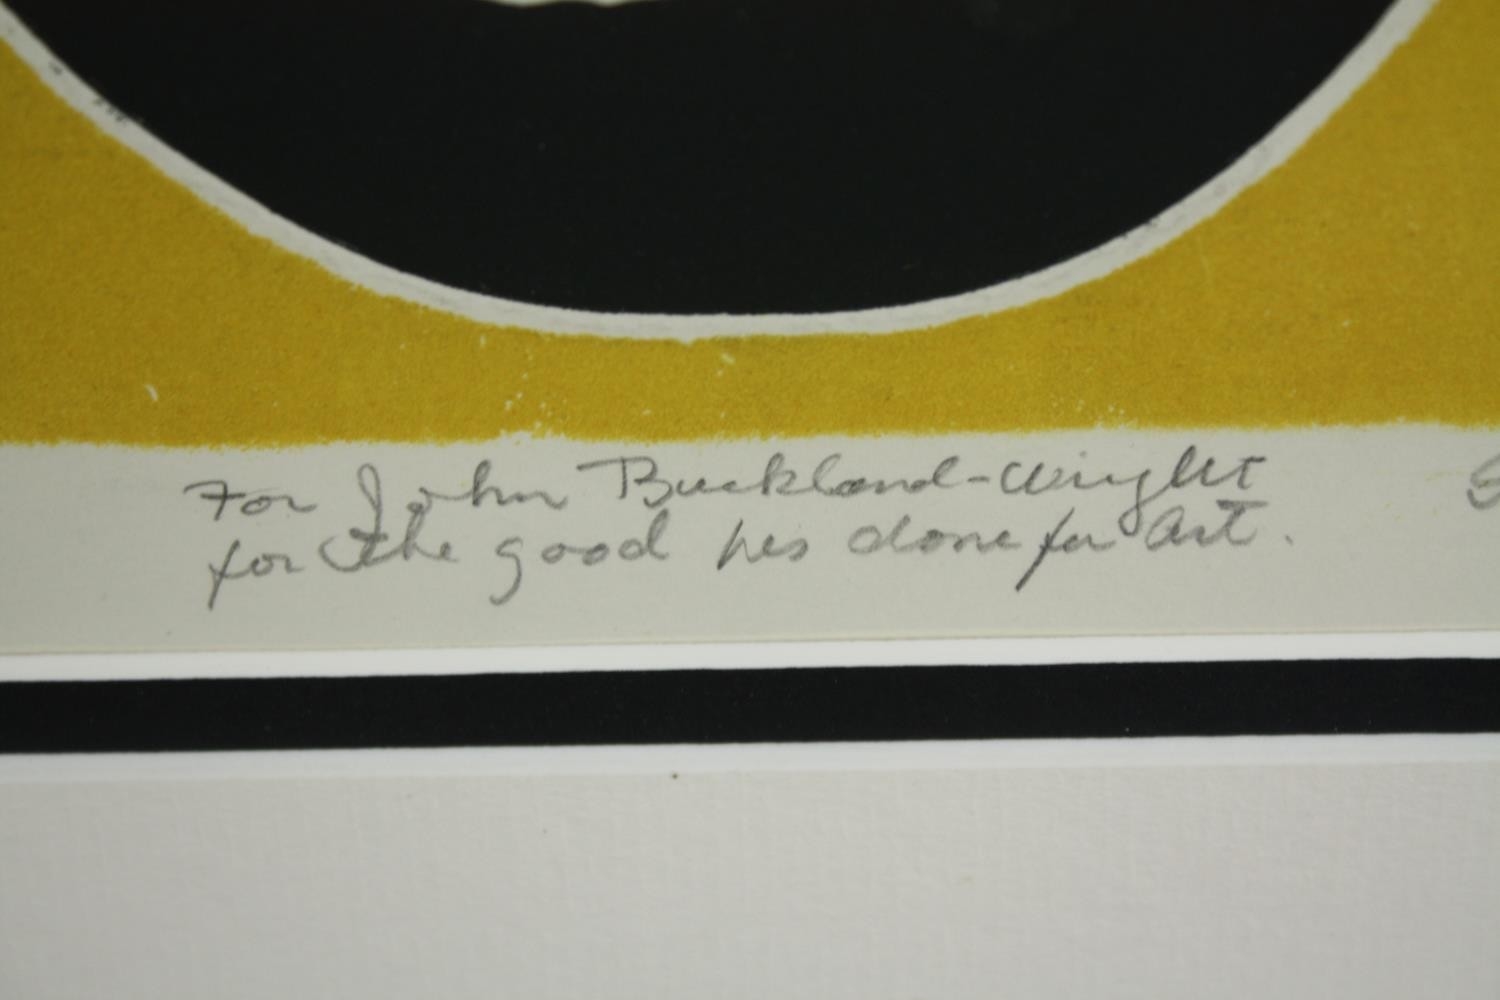 For John Buckland-Wright
for the good hes done for Art.